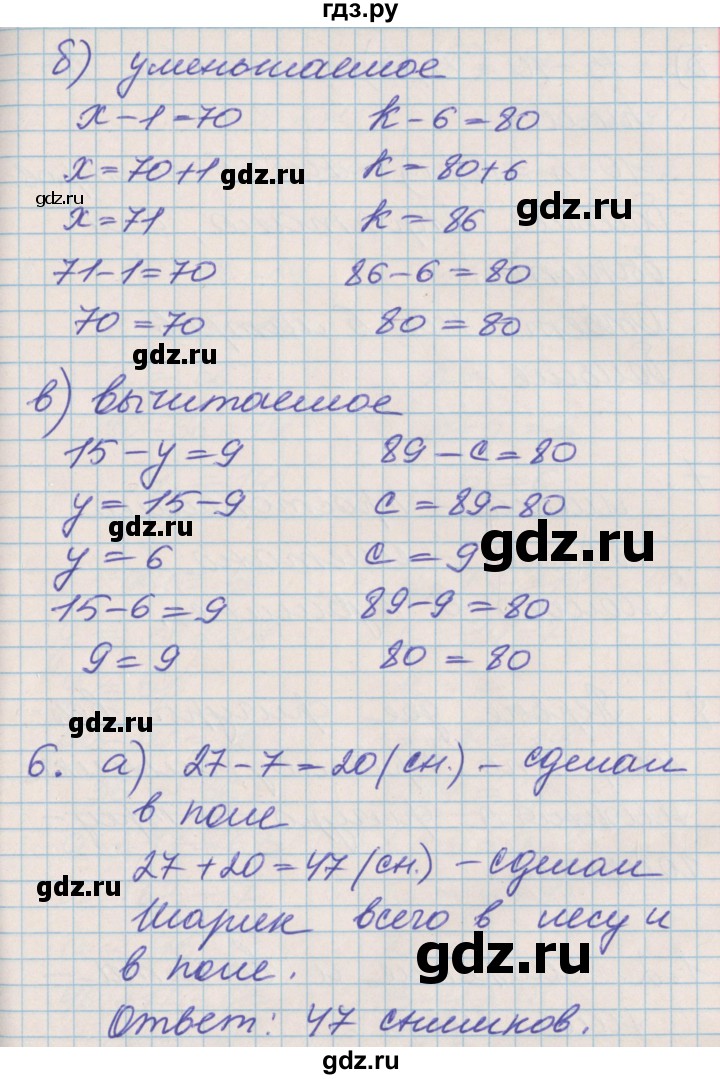 гдз.ру
б) уменьшаемое
x - 1 = 70 k - 6 = 80
x = 70 + 1 k = 80 + 6
gdz.ru
gdz.ru
gdz.ru
x = 71 k = 86
71 - 1 = 70 86 - 6 = 80
70 = 70 80 = 80
gdz.ru
в) вычитаемое
15 - y = 9 89 - c = 80
y = 15 - 9 c = 89 - 80
gdz.ru
gdz.ru
y = 6 c = 9
15 - 6 = 9 89 - 9 = 80
9 = 9 80 = 80
gdz.ru
6. а) 27 - 7 = 20 (сн.) - сделал
в поле
27 + 20 = 47 (сн.) - сделал
gdz.ru
Шарик всего в лесу и
gdz.ru
в поле.
Ответ: 47 снимков.
gdz.ru